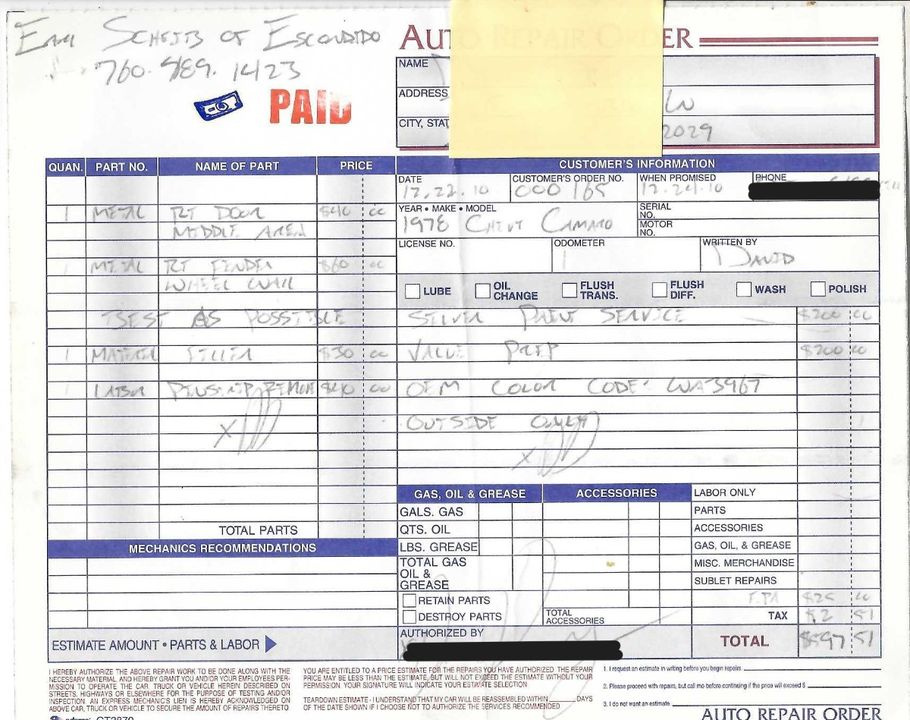 Earl Scheib's of Escondido
760. 489. 1423
PAID
AUTO REPAIR ORDER
NAME
ADDRESS
LN
CITY, STAT
2029
QUAN. PART NO. NAME OF PART PRICE
CUSTOMER'S INFORMATION
DATE 12.22.10 CUSTOMER'S ORDER NO. 000165 WHEN PROMISED 12.24.10 PHONE
1 METAL RT DOOR $40 00
MIDDLE AREA
YEAR • MAKE • MODEL 1978 CHEVY CAMARO
SERIAL NO.
MOTOR NO.
LICENSE NO. ODOMETER WRITTEN BY DAVID
1 METAL RT FENDER $60 00
WHEEL WELL
LUBE OIL CHANGE FLUSH TRANS. FLUSH DIFF. WASH POLISH
BEST AS POSSIBLE
SILVER PAINT SERVICE $200 00
1 MATERIAL FILLER $30 00
VALUE PREP $200 00
LABOR $40 00
OEM COLOR CODE: WA3967
OUTSIDE ONLY
X
X
GAS, OIL & GREASE ACCESSORIES LABOR ONLY
GALS. GAS PARTS
TOTAL PARTS QTS. OIL ACCESSORIES
MECHANICS RECOMMENDATIONS LBS. GREASE GAS, OIL, & GREASE
TOTAL GAS OIL & GREASE MISC. MERCHANDISE
SUBLET REPAIRS
RETAIN PARTS EPA $25 00
DESTROY PARTS TOTAL ACCESSORIES TAX $2 51
ESTIMATE AMOUNT • PARTS & LABOR AUTHORIZED BY TOTAL $597 51
I HEREBY AUTHORIZE THE ABOVE REPAIR WORK TO BE DONE ALONG WITH THE
NECESSARY MATERIAL, AND HEREBY GRANT YOU AND/OR YOUR EMPLOYEES PER-
MISSION TO OPERATE THE CAR TRUCK OR VEHICLE HEREIN DESCRIBED ON
STREETS, HIGHWAYS OR ELSEWHERE FOR THE PURPOSE OF TESTING AND/OR
INSPECTION. AN EXPRESS MECHANIC'S LIEN IS HEREBY ACKNOWLEDGED ON
ABOVE CAR, TRUCK OR VEHICLE TO SECURE THE AMOUNT OF REPAIRS THERETO
YOU ARE ENTITLED TO A PRICE ESTIMATE FOR THE REPAIRS YOU HAVE AUTHORIZED. THE REPAIR
PRICE MAY BE LESS THAN THE ESTIMATE, BUT WILL NOT EXCEED THE ESTIMATE WITHOUT YOUR
PERMISSION. YOUR SIGNATURE WILL INDICATE YOUR ESTIMATE SELECTION
TEARDOWN ESTIMATE - I UNDERSTAND THAT MY CAR WILL BE REASSEMBLED WITHIN DAYS
OF THE DATE SHOWN IF I CHOOSE NOT TO AUTHORIZE THE SERVICES RECOMMENDED
1. I request an estimate in writing before you begin repairs
2. Please proceed with repairs, but call me before continuing if the price will exceed $
3. I do not want an estimate
adams GT3870
AUTO REPAIR ORDER